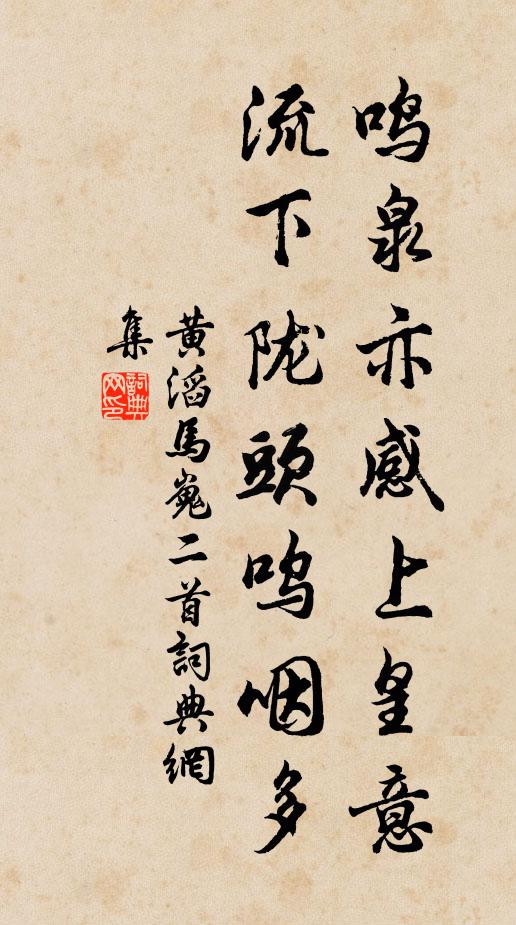 鸣泉亦感上皇意
流下陇頭呜咽多
黄滔馬嵬二首詞典網
集
詞典网印